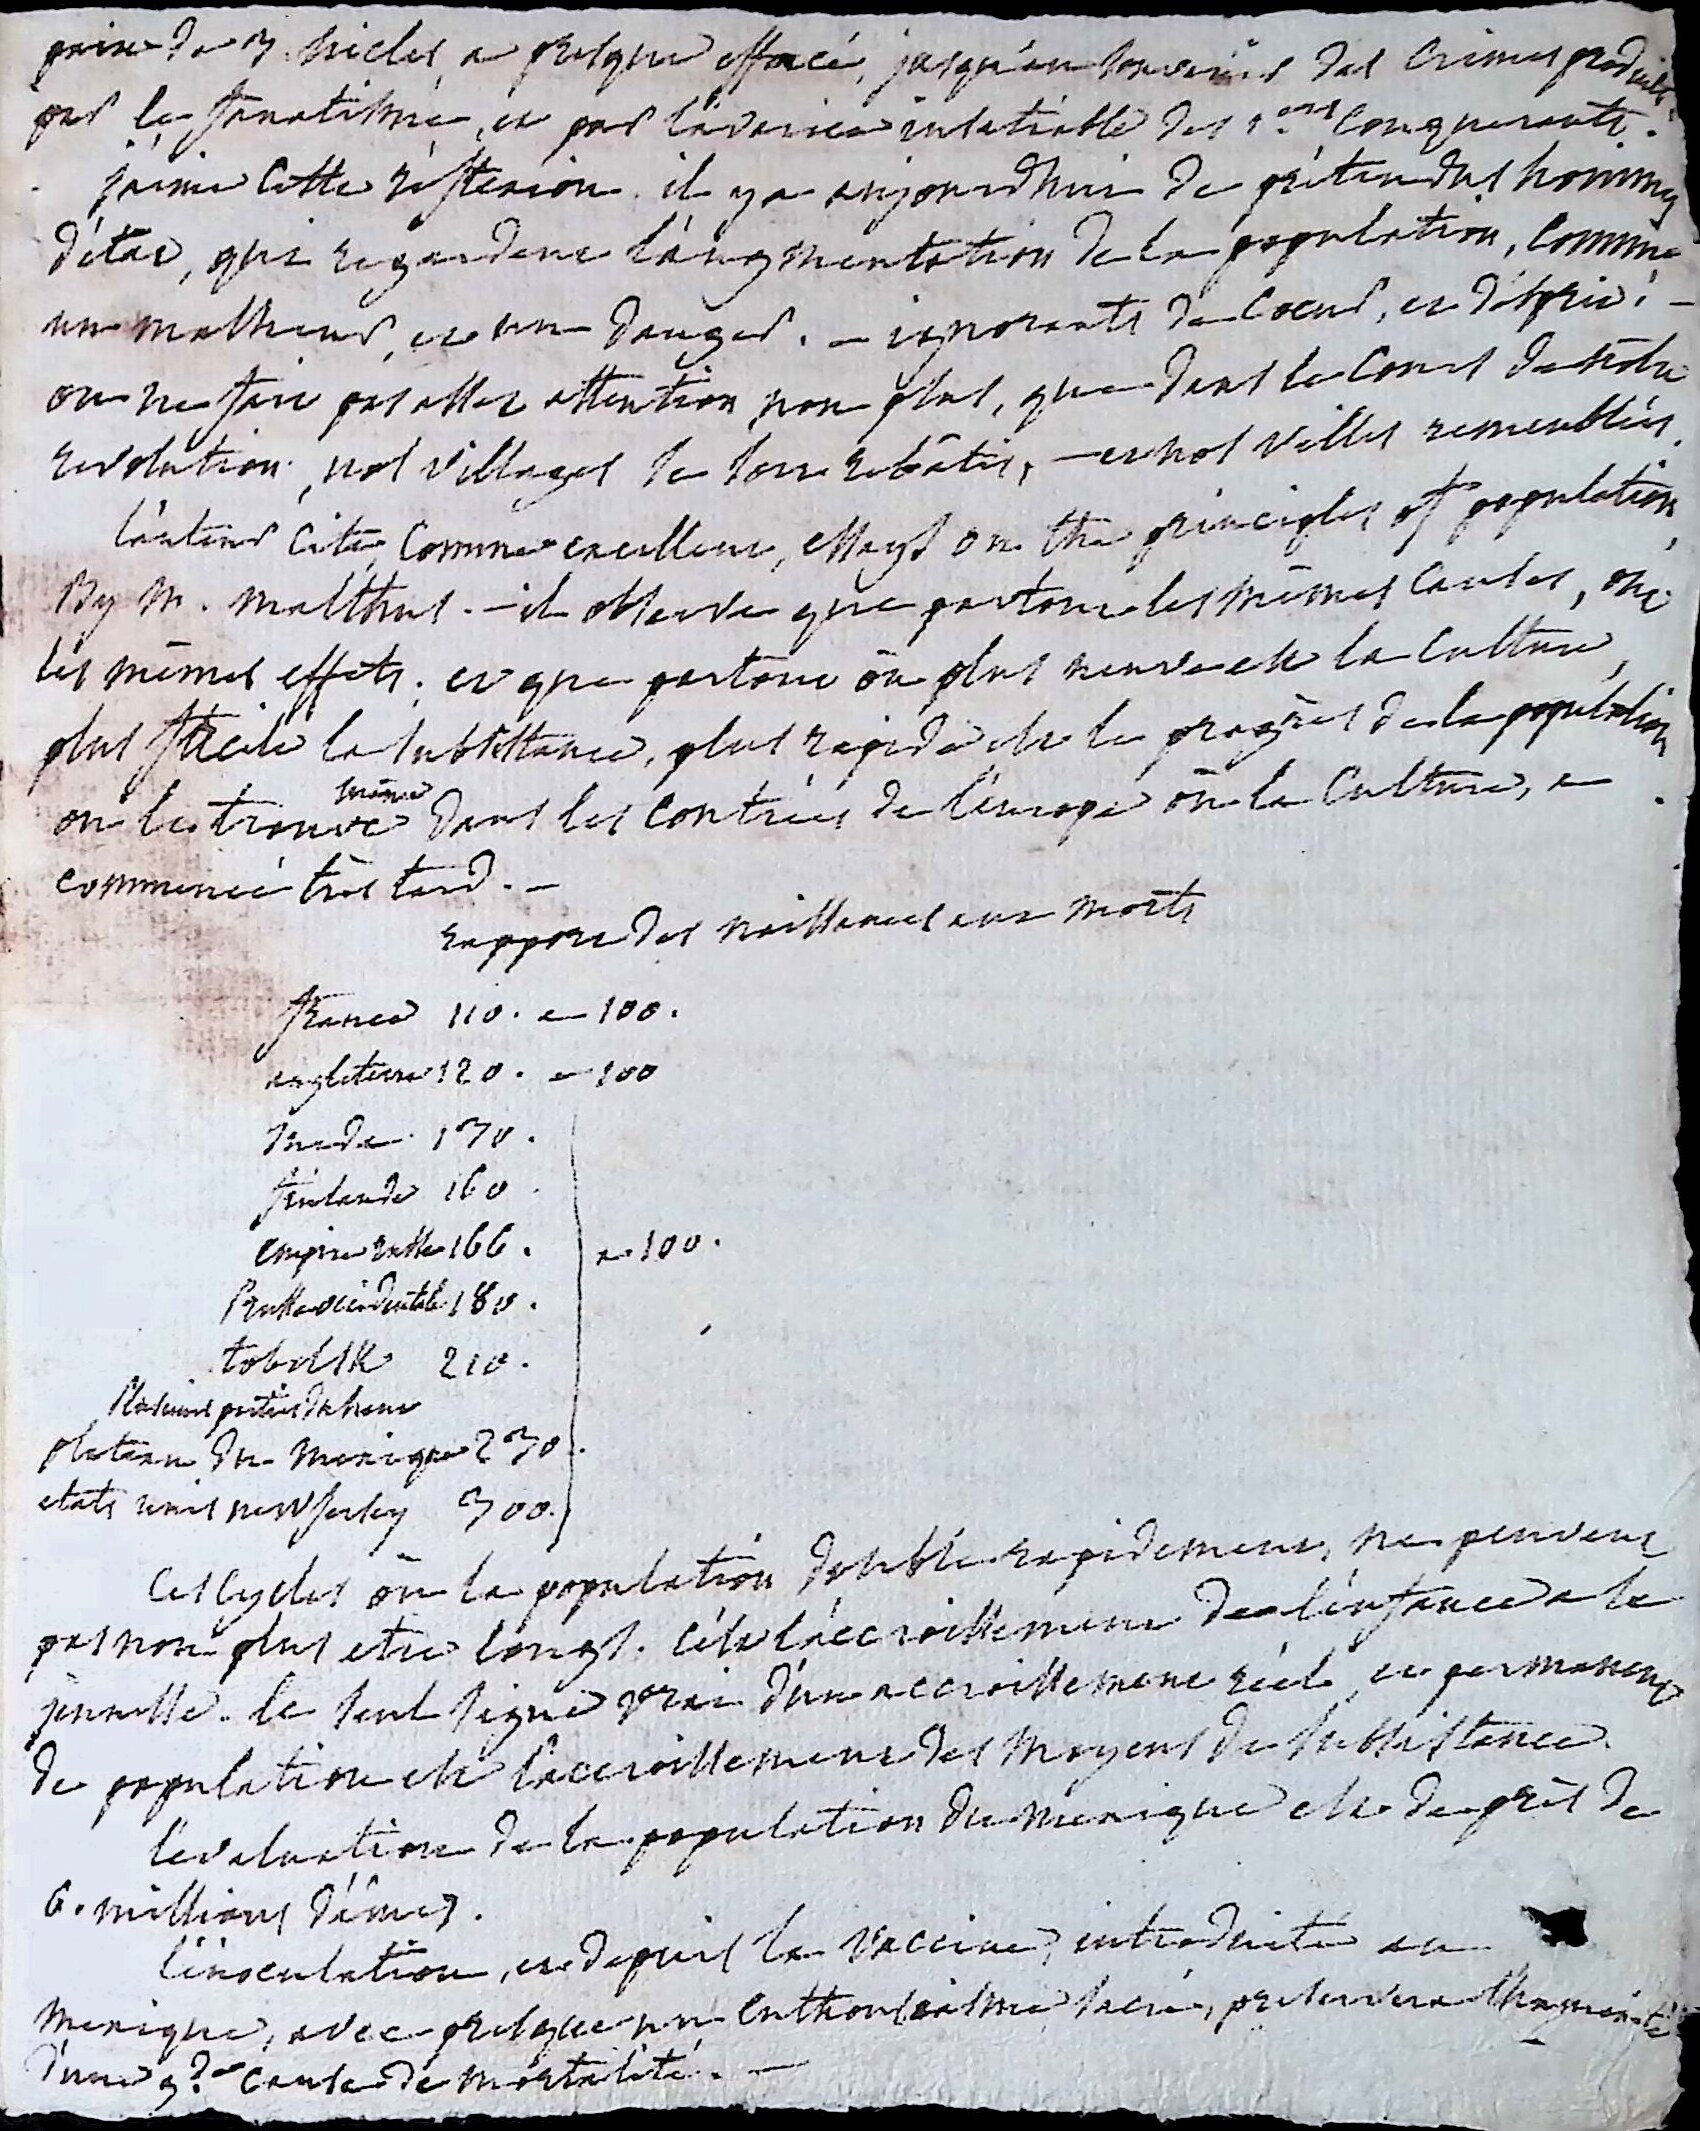 paix de 3. siècles, a presque effacé, jusqu'au souvenir des crimes produits
par le fanatisme, et par l'avarice insatiable des 1.ers conquerants.
j'aime cette réflexion. il y a aujourdhui de prétendus hommes
d'état, qui regardent l'augmentation de la population, comme
un malheur, et un danger. — ignorants de coeur, et d'esprit! —
on ne fait pas assez attention non plus, que dans le cours de notre
revolution, nos villages se sont rebâtis, — et nos villes remeublées.
l'auteur cite, comme excellent, essays on the principles of population,
By M. Malthus. — il observe que partout les mêmes causes, ont
les mêmes effets. et que partout où plus neuve est la culture,
plus facile la subsistance, plus rapide est le progrès de la population
on le trouve même dans les contrées de l'europe où la culture, a
commencé très tard. —
rapport des naissances aux morts
france 110. a 100.
angleterre 120. a 100
suede 130.
finlande 160.
empire russe 166. a 100.
Prusse occidentale 180.
tobolsk 210.
Plusieurs parties du haut
plateau du mexique 230.
etats unis new jersey 300.
Ces cycles où la population double rapidement, ne peuvent
pas non plus etre longs. c'est l'accroissement de l'enfance a la
jeunesse. le seul signe vrai d'un accroissement réel et permanent
de population est l'accroissement des moyens de subsistance.
l'evaluation de la population du mexique est de près de
6. millions d'âmes.
l'inoculation, et depuis la vaccine, introduite au
mexique, avec presque un enthousiasme sacré, preservera l'humanité
d'une g.de cause de mortalité. —